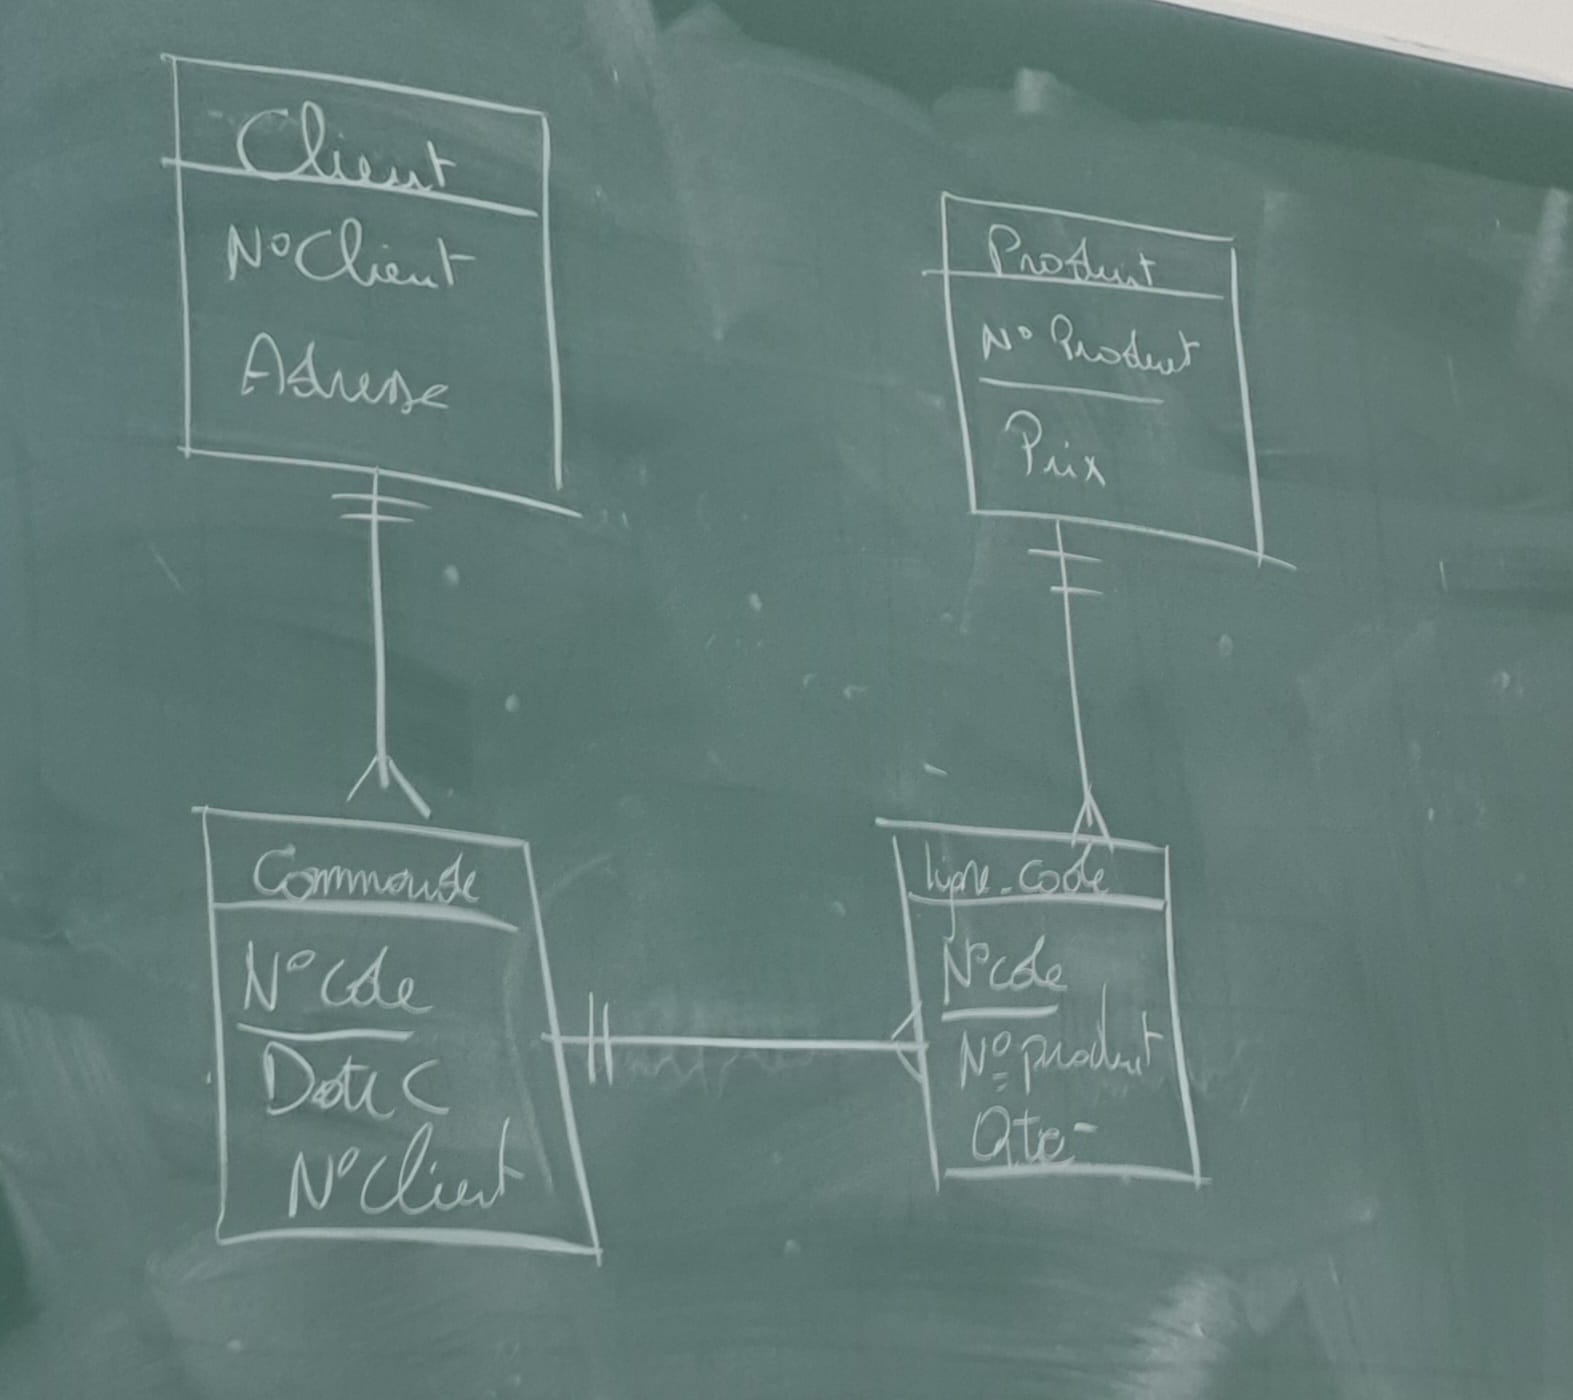 Client
N° Client
Adresse
Produit
N° Produit
Prix
Commande
N° Cde
Date C
N° Client
ligne_Cde
N° cde
N° produit
Qte